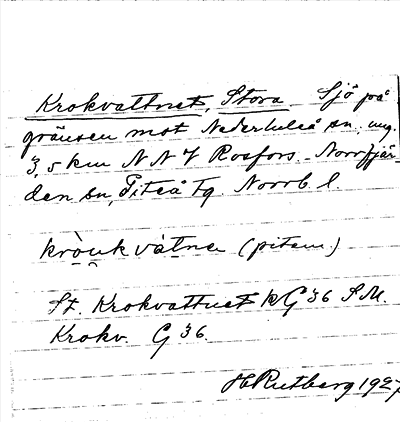 Krokvattnet, Stora Sjö på
gränsen mot Nederluleå sn, ung.
3,5 km NNV Rosfors. Norrfjär-
den sn, Piteå tg. Norrb. l.
kròukvàtne (pitem.)
St. Krokvattnet k G 36 S.M.
Krokv. G 36.
H Rutberg 1927